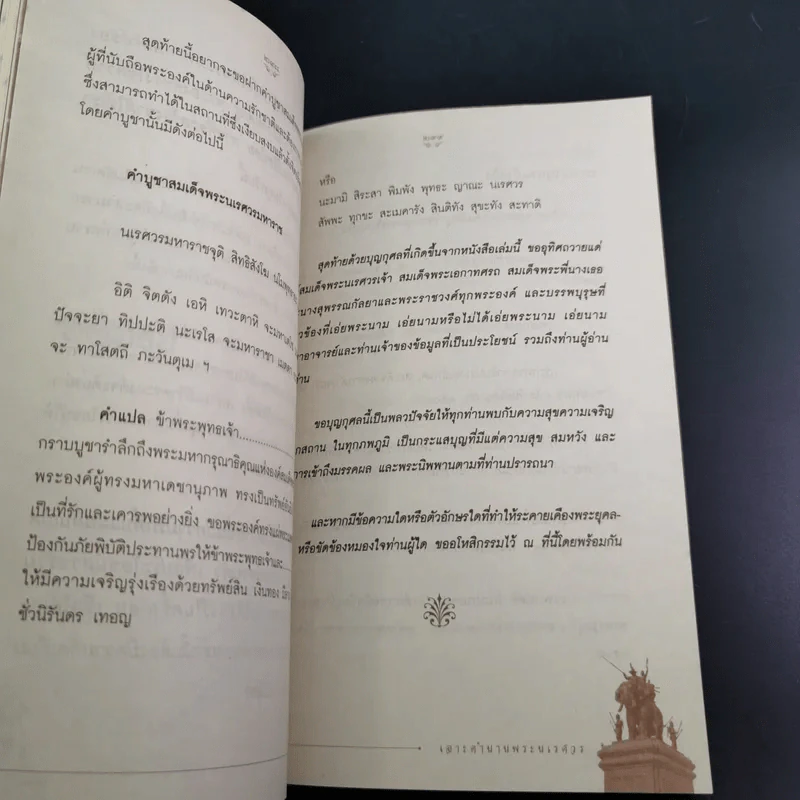 สุดท้ายนี้อยากจะขอฝากคำบูชา
ผู้ที่นับถือพระองค์ในด้านความรักชาติและ
ซึ่งสามารถทำได้ในสถานที่ซึ่งเงียบสงบแล้ว
โดยคำบูชานั้นมีดังต่อไปนี้
คำบูชาสมเด็จพระนเรศวรมหาราช
นเรศวรมหาราชจุติ สิทธิสังโฆ
อิติ จิตตัง เอหิ เทวะตาหิ จะมหา
ปัจจะยา ทิปปะติ นะเรโส จะมหาราชา
จะ ทาโสตถี ภะวันตุเม ฯ
คำแปล ข้าพระพุทธเจ้า..........
กราบบูชารำลึกถึงพระมหากรุณาธิคุณแห่งองค์
พระองค์ผู้ทรงมหาเดชานุภาพ ทรงเป็น
เป็นที่รักและเคารพอย่างยิ่ง ขอพระองค์ทรง
ป้องกันภัยพิบัติประทานพรให้ข้าพระพุทธเจ้าและ....
ให้มีความเจริญรุ่งเรืองด้วยทรัพย์สิน เงินทอง
ชั่วนิรันดร เทอญ
หรือ
นะมามิ สิระสา พิมพัง พุทธะ ญาณะ นเรศวร
สัพพะ ทุกขะ สะเมคารัง สินติทัง สุขะทัง สะทาติ
สุดท้ายด้วยบุญกุศลที่เกิดขึ้นจากหนังสือเล่มนี้ ขออุทิศถวายแด่
สมเด็จพระนเรศวรเจ้า สมเด็จพระเอกาทศรถ สมเด็จพระพี่นางเธอ
ะนางสุพรรณกัลยาและพระราชวงศ์ทุกพระองค์ และบรรพบุรุษที่
วข้องที่เอ่ยพระนาม เอ่ยนามหรือไม่ได้เอ่ยพระนาม เอ่ยนาม
าอาจารย์และท่านเจ้าของข้อมูลที่เป็นประโยชน์ รวมถึงท่านผู้อ่าน
่าน
ขอบุญกุศลนี้เป็นพลวปัจจัยให้ทุกท่านพบกับความสุขความเจริญ
ุกสถาน ในทุกภพภูมิ เป็นกระแสบุญที่มีแต่ความสุข สมหวัง และ
การเข้าถึงมรรคผล และพระนิพพานตามที่ท่านปรารถนา
และหากมีข้อความใดหรือตัวอักษรใดที่ทำให้ระคายเคืองพระยุคล-
หรือขัดข้องหมองใจท่านผู้ใด ขออโหสิกรรมไว้ ณ ที่นี้โดยพร้อมกัน
เจาะตำนานพระนเรศวร